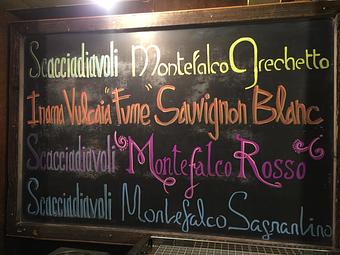 Scacciadiavoli Montefalco Grechetto
Inama Vulcaia "Fume" Sauvignon Blanc
Scacciadiavoli "Montefalco Rosso"
Scacciadiavoli Montefalco Sagrantino